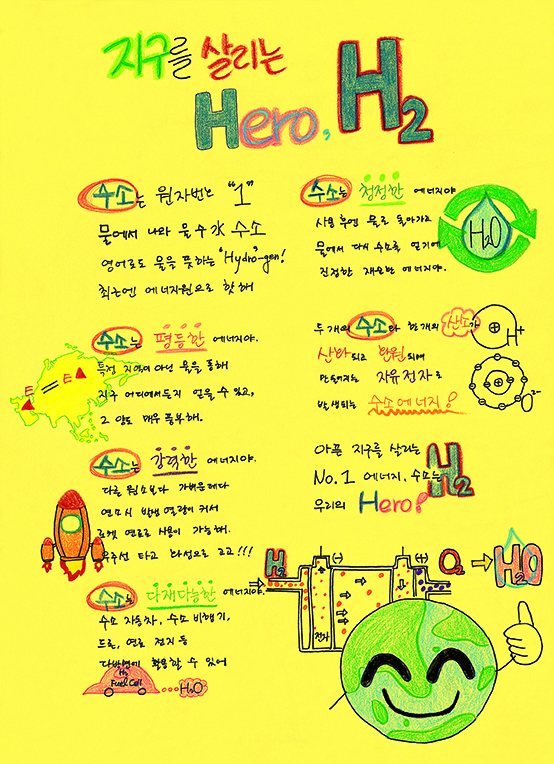 지구를 살리는
Hero, H2
수소는 원자번호 "1"
물에서 나와 물 수 水 수소
영어로도 물을 뜻하는 'Hydro'-gen!
최근엔 에너지원으로 핫해
수소는 평등한 에너지야.
특정 지역이 아닌 물을 통해
지구 어디에서든지 얻을 수 있고,
그 양도 매우 풍부해.
E = E
수소는 강력한 에너지야.
다른 원소보다 가벼운데다
연소시 발생 열량이 커서
로켓 연료로 사용이 가능해.
우주선 타고 화성으로 고고!!!
수소는 다재다능한 에너지야.
수소 자동차, 수소 비행기,
드론, 연료 전지 등
다방면에 활용할 수 있어
H2
Fuel Cell
H2O
수소는 청정한 에너지야
사용 후엔 물로 돌아가고
물에서 다시 수소를 얻기에
진정한 재순환 에너지야.
H2O
두 개의 수소와 한 개의 산소가
산화되고 환원되며
만들어지는 자유전자로
발생되는 수소에너지!
+
H+
+
O2-
아픈 지구를 살리는
No.1 에너지, 수소는
우리의 Hero!
H2
H2
(-)
(+)
O2
H2O
전자